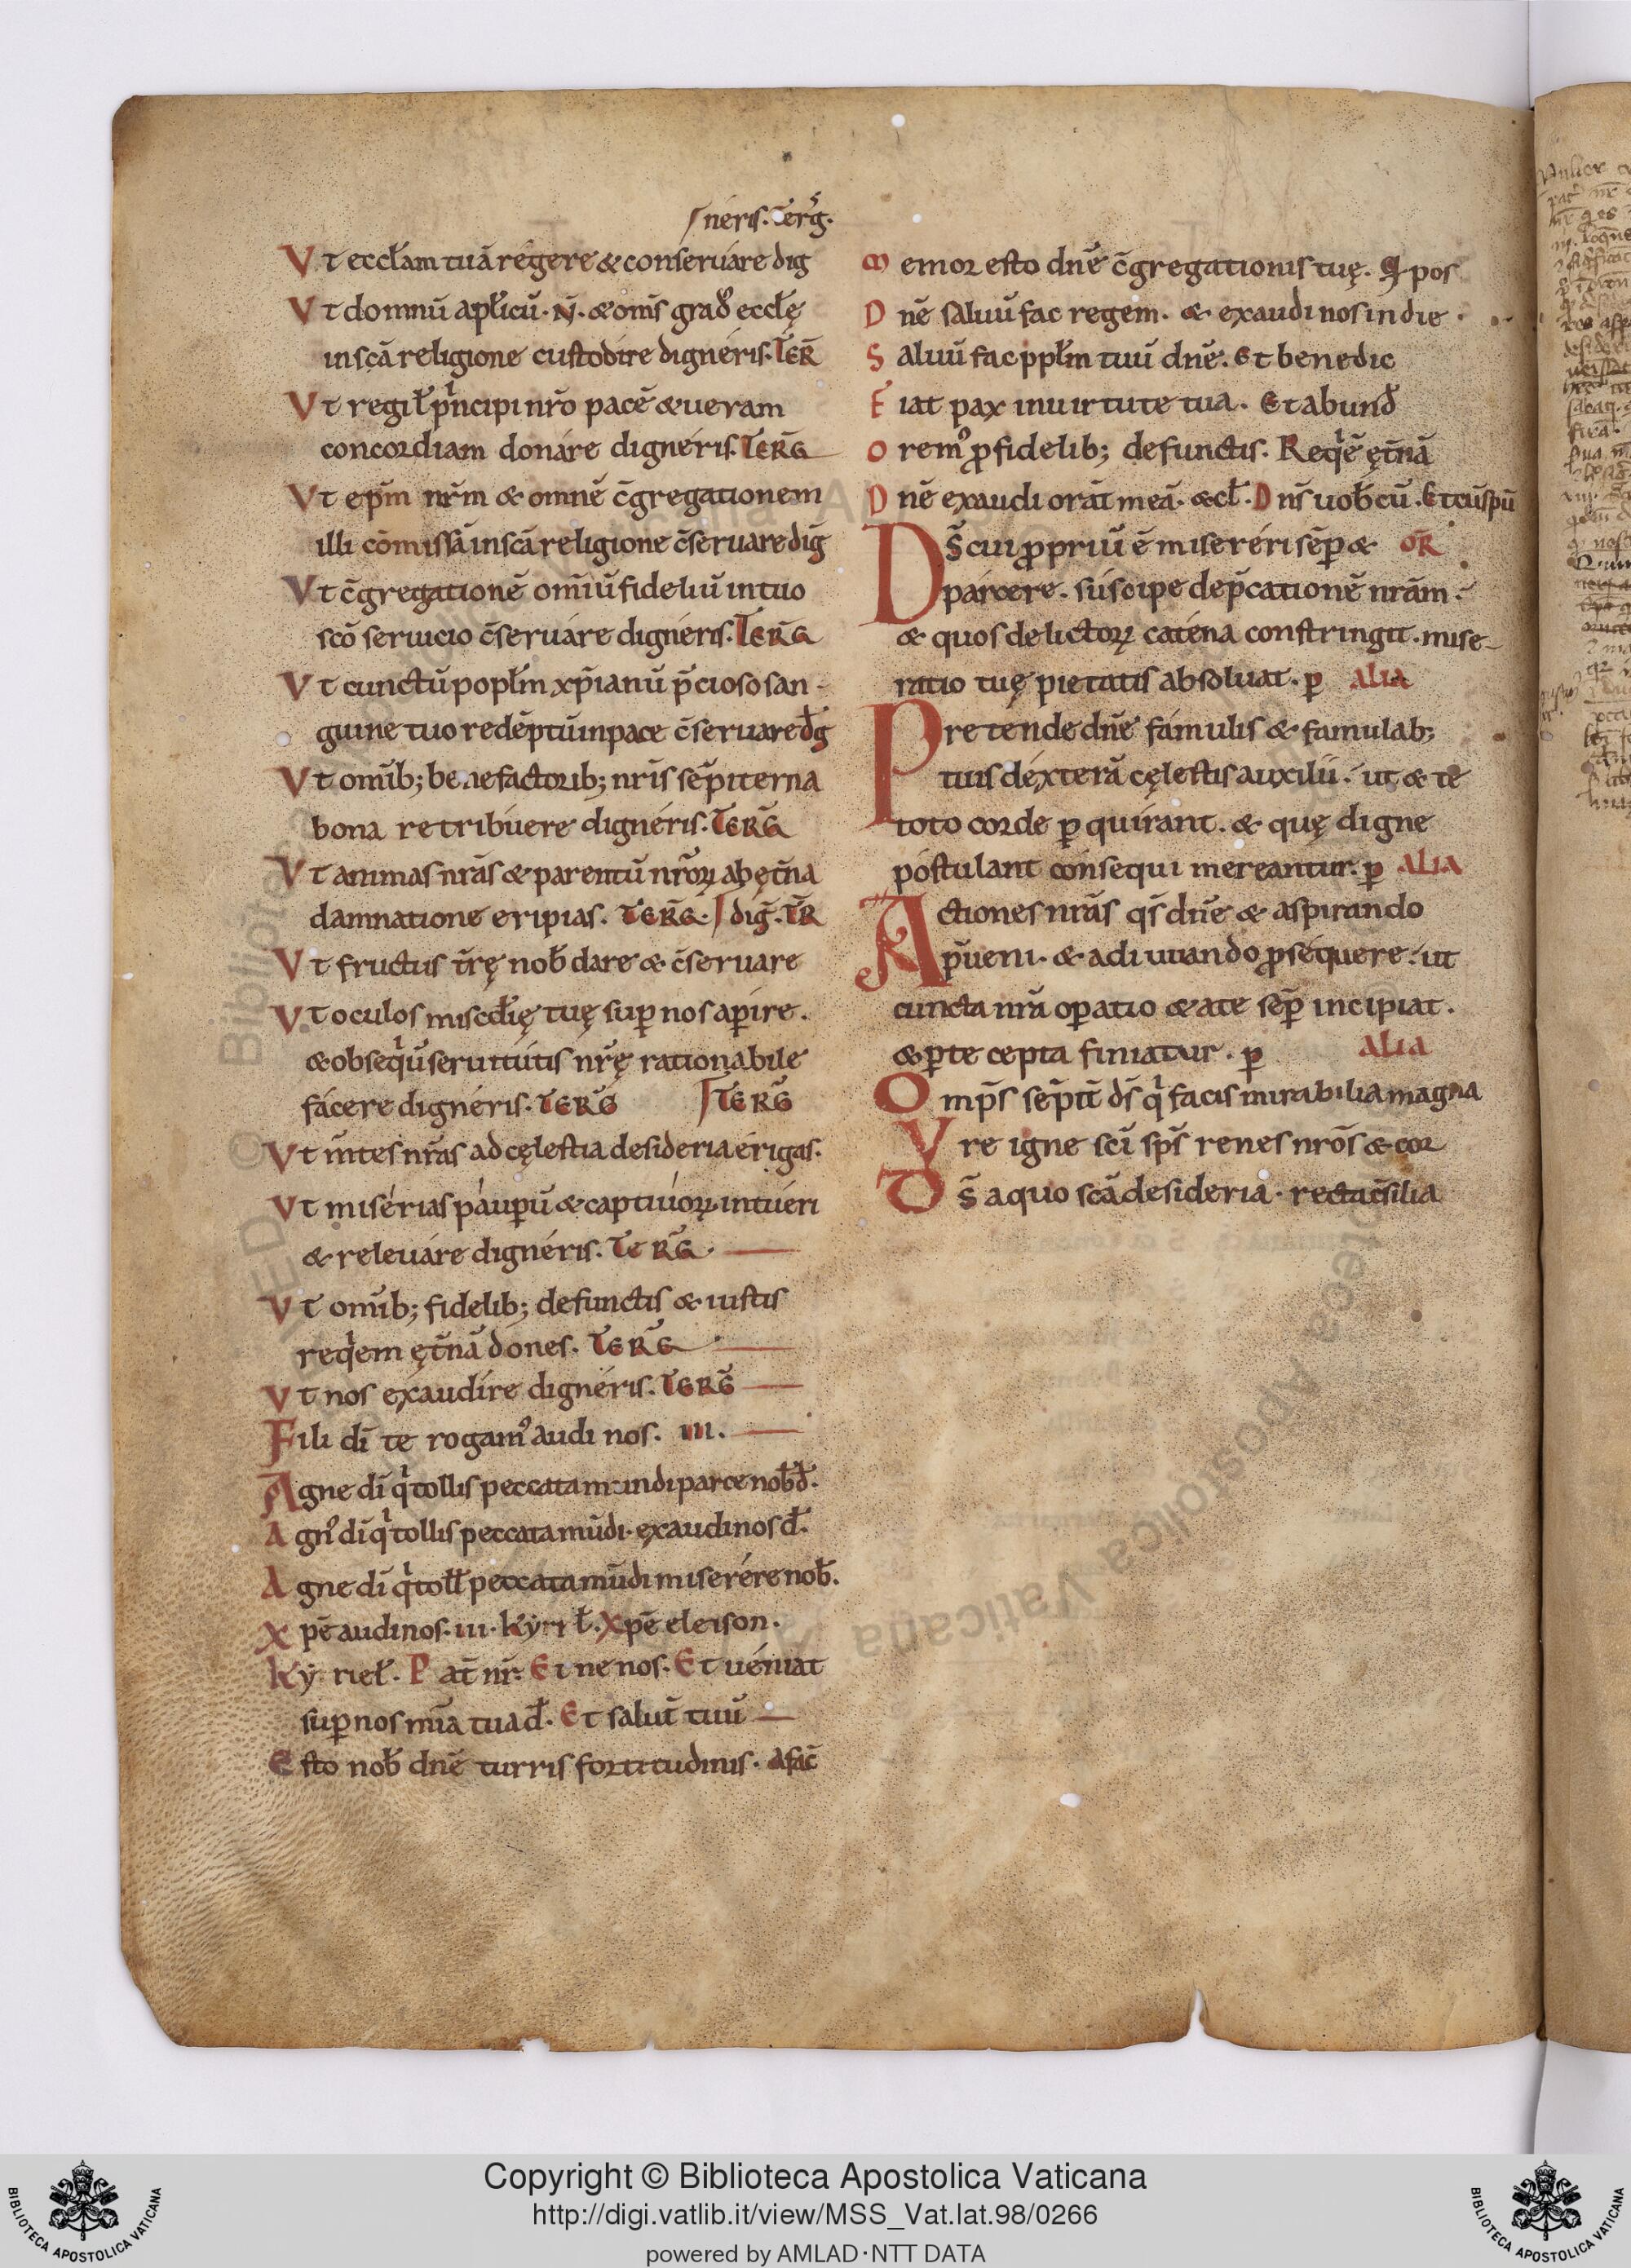 neris. Terḡ.
Vt eccłam tuā regere & conseruare dig
Vt domnū apłicū. N. & om̄s grad᷒ eccłę
in scā religione custodire digneris. TER̄
Vt regi ł pͥncipi nr̄o pacē & ueram
concordiam donare digneris. TERḠ
Vt ep̄m nr̄m & omnē c̄gregationem
illi cōmissā in scā religione c̄seruare diḡ
Vt c̄gregationē om̄iū fideliū in tuo
scō seruicio c̄seruare digneris. TERḠ
Vt cunctū popłm xp̄ianū p̄cioso san-
guine tuo redēptū in pace c̄seruare dḡ
Vt omīb; benefactorib; nr̄is sēpiterna
bona retribuere digneris. TERḠ
Vt animas nr̄as & parentū nr̄oꝝ ab ęt̄na
damnatione eripias. TERḠ. diḡ. TR̄
Vt fructus t̄rę nob̄ dare & c̄seruare
Vt oculos misc̄dię tuę suꝑ nos aꝑire.
& obseqͥū seruitutis nr̄ę rationabile
facere digneris. TERḠ TERḠ
Vt m̄tes nr̄as ad cęlestia desideria erigas.
Vt miserias pauꝑū & captiuoꝝ intueri
& releuare digneris. TERḠ.
Vt omīb; fidelib; defunctis & iustis
reqͥem ęt̄nā dones. TERḠ
Vt nos exaudire digneris. TERḠ
Fili dī te rogam᷒ audi nos. III.
Agne dī qͥ tollis peccata mundi parce nob̄ d̄.
Agn᷒ dī qͥ tollis peccata mūdi. exaudi nos d̄.
Agne dī qͥ toll̄ peccata mūdi miserere nob̄.
Xp̄e audi nos. III. Kyri ł. Xpē eleison.
Ky rieł. Pat̄ nr̄. Et ne nos. Et ueniat
suꝑ nos mīa tua d̄. Et salut̄ tuū
Esto nob̄ dnē turris fortitudinis. A fac̄
Memor esto dnē c̄gregationis tuę. Q pos
Dnē saluū fac regem. & exaudi nos in die.
Saluū fac ppłm tuū dnē. Et benedic
Fiat pax in uirtute tua. Et abund̄
Orem᷒ ꝓ fidelib; defunctis. Reqͥē ęt̄nā
Dnē exaudi orat̄ meā. & cł. Dn̄s uob̄cū. Et cū sp̄u
D̄s cui ꝓpriū ē misereri sēꝑ & OR̄
parcere. suscipe dep̄cationē nr̄am.
& quos delictoꝝ catena constringit. mise-
ratio tuę pietatis absoluat. ꝑ ALIA
Pretende dnē famulis & famulab;
tuis dexterā cęlestis auxilii. ut & te
toto corde ꝑquirant. & quę digne
postulant consequi mereantur. ꝑ ALIA
Actiones nr̄as qs̄ dnē & aspirando
p̄ueni. & adiuuando ꝓsequere. ut
cuncta nr̄a oꝑatio & a te sēꝑ incipiat.
& ꝑ te cepta finiatur. ꝑ ALIA
Omp̄s sēpit̄ ds̄ qͥ facis mirabilia magna
Vre igne scī sp̄s renes nr̄os & cor
D̄s a quo scā desideria. recta c̄silia
Copyright © Biblioteca Apostolica Vaticana
http://digi.vatlib.it/view/MSS_Vat.lat.98/0266
powered by AMLAD·NTT DATA
BIBLIOTECA APOSTOLICA VATICANA
BIBLIOTECA APOSTOLICA VATICANA